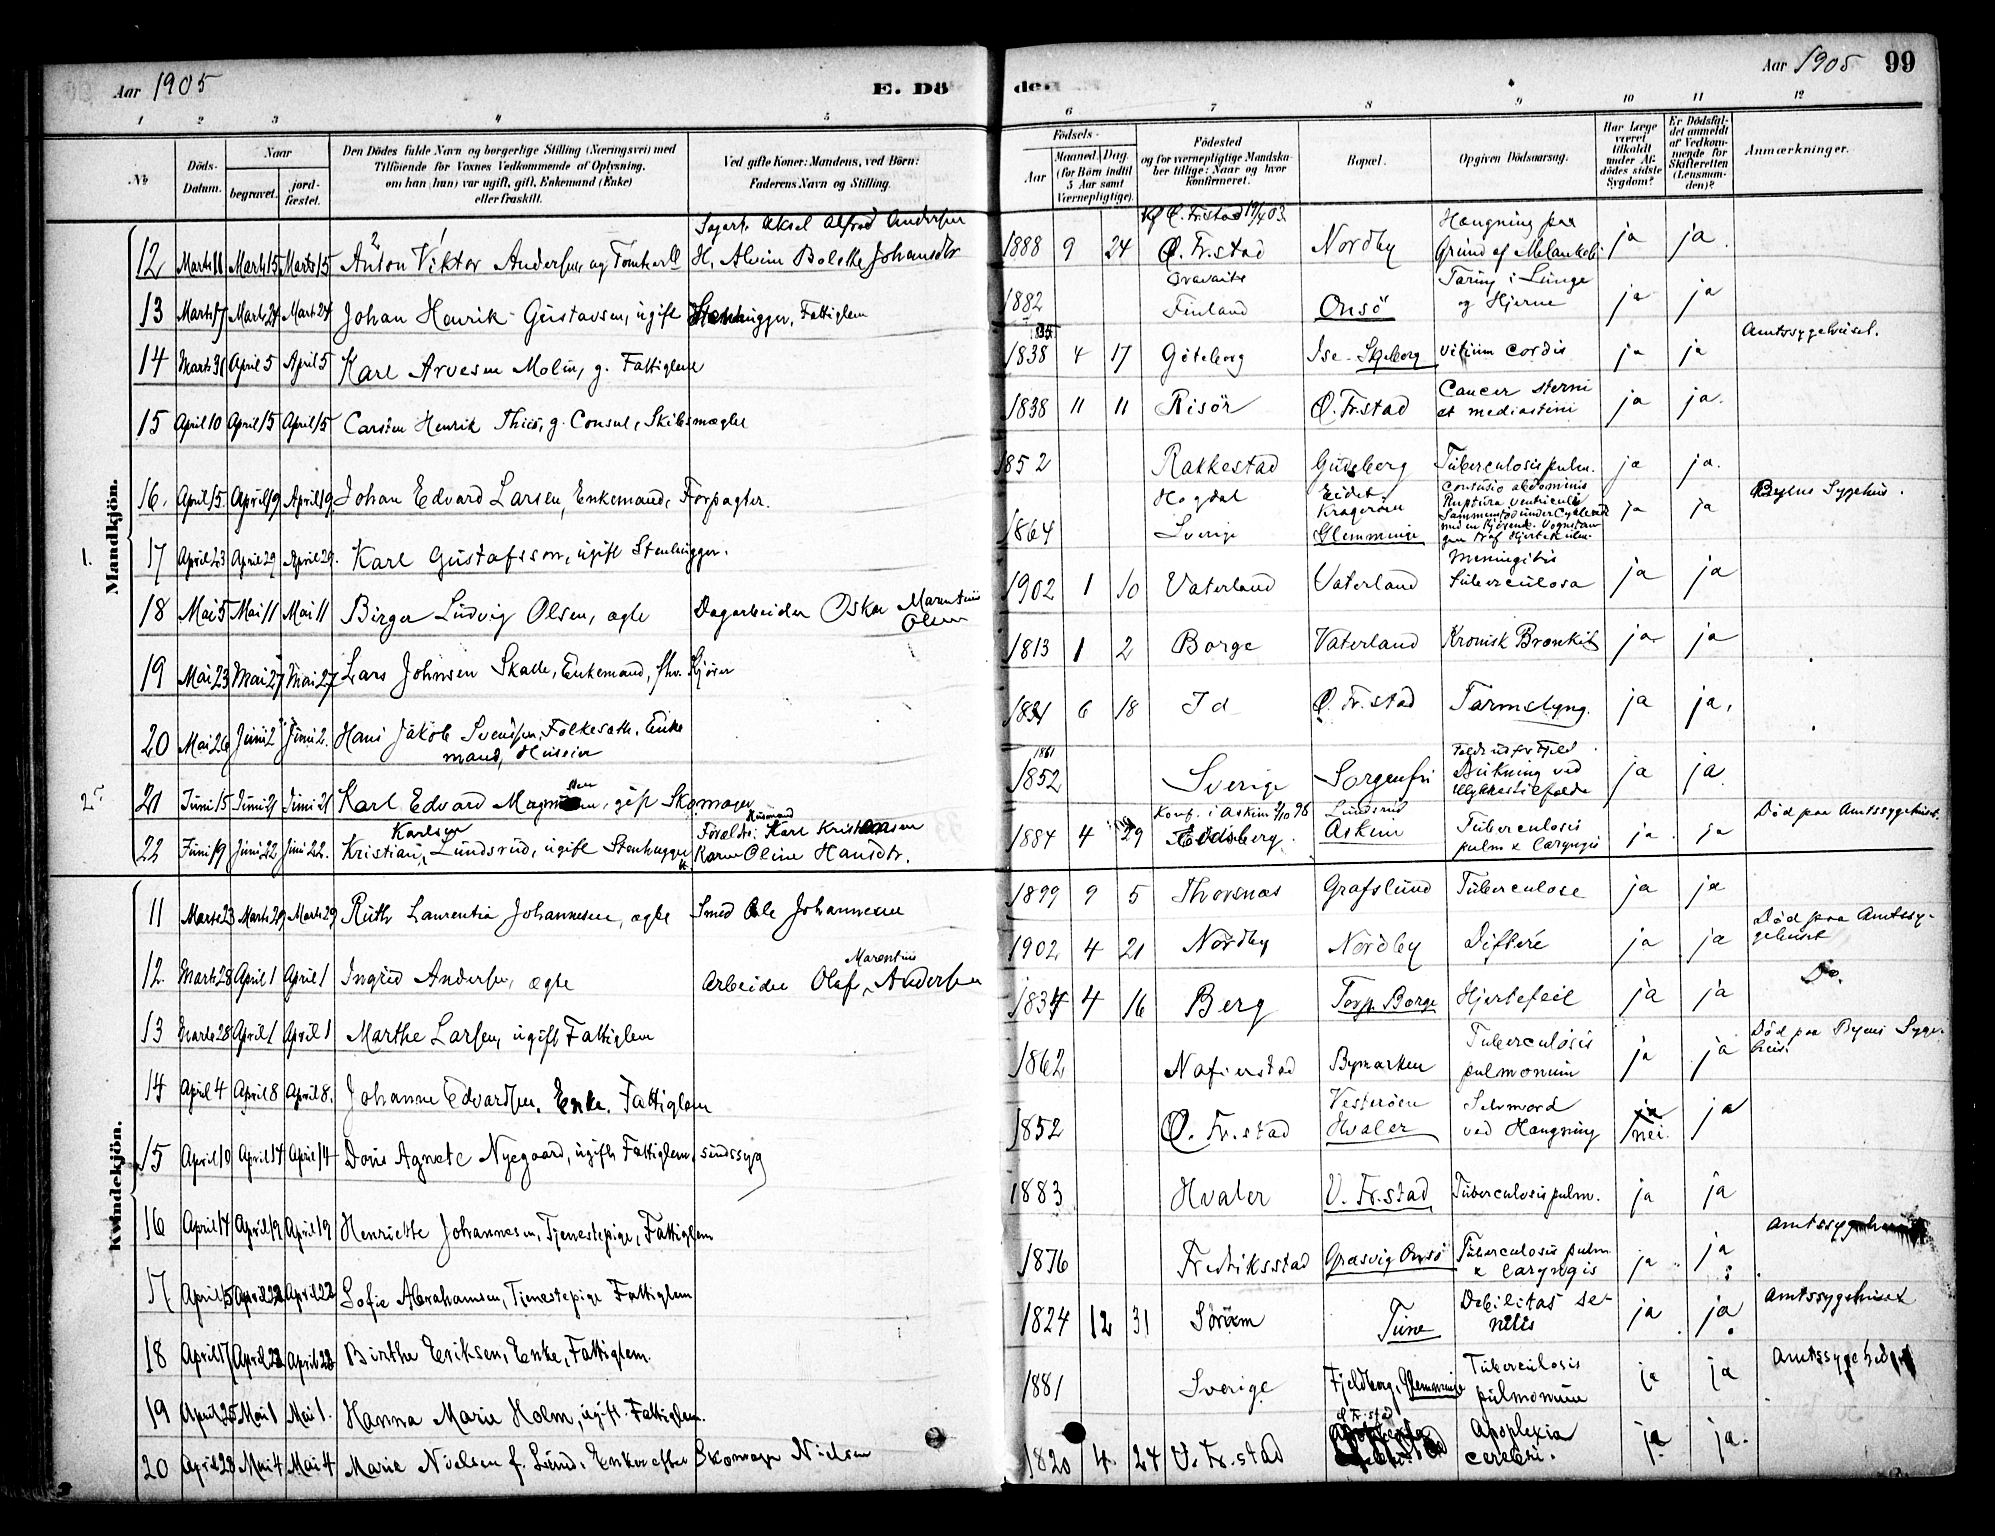 Aar 1905
E. Dö
den
Aar 1905 99
1 2 3 4 5 6 7 8 9 10 11 12
No
Döds-
Datum.
Naar
begravet.
jord-
fæstet.
Den Dödes fulde Navn og borgerlige Stilling (Næringsvei) med
Tilföiende for Voxnes Vedkommende af Oplysning,
om han (hun) var ugift, gift, Enkemand (Enke)
eller fraskilt.
Ved gifte Koner: Mandens, ved Börn:
Faderens Navn og Stilling.
Födsels-
Aar
Maaned. Dag.
(for Börn indtil
5 Aar samt
Værnepligtige).
Födested
og for værnepligtige Mandska-
ber tillige: Naar og hvor
konfirmeret.
Bopæl.
Opgiven Dödsaarsag.
Har Læge
været
tilkaldt
under Af-
dödes sidste
Sygdom?
Er Dödsfal-
det anmeldt
af Vedkom-
mende for
Skifteretten
(Lensman-
den)?
Anmærkninger.
Mandkjön.
12 Marts 11 Marts 15 Marts 15 Anton Viktor Andersen, ug Tømkarll Sagarb. Aksel Alfred Andersen
H. Alvine Bolette Johansdtr 1888 9 24 Kf Ø. Fr.stad 19/4 03
Ø. Fr.stad Nordby Hængning paa
Grund af Melankoli ja ja
13 Marts 17 Marts 24 Marts 24 Johan Henrik Gustavsen, ugift Stenhugger, Fattiglem 1882 Finland Onsö Taring i Lunge
og Hjerne ja ja
14 Marts 31 April 5 April 5 Karl Arvesen Molin, g. Fattiglem 1838 4 17 Göteborg Ise-Skjeberg Vitium Cordis ja ja Amtssygehuset.
15 April 10 April 15 April 15 Carsten Henrik Thiis, g. Consul, Skibsmægler 1838 11 11 Risör Ø. Fr.stad Cancer sterni
et mediastini ja ja.
16. April 15. April 19 April 19 Johan Edvard Larsen, Enkemand, Forpagter. 1852 Rakkestad Gudeberg Tuberculosis pulm. ja ja.
1. 17 April 23 April 29 April 29. Karl Gustafsson, ugift Stenhugger. 1864 Hogdal
Sverige Eidet
Kragerøen
Glemminge Contusio abdominis
Ruptura Ventriculi ja ja Byens Sygehus.
18 Mai 5 Mai 11 Mai 11 Birger Ludvig Olsen, ægte Dagarbeider Oskar Marentius
Olsen 1902 1 10 Vaterland Vaterland Meningitis
tuberculosa ja ja
19 Mai 23 Mai 27 Mai 27 Lars Johnsen Skade, Enkemand, fhv. Kjører 1813 1 2 Borge Vaterland Kronisk Bronkit ja ja
20 Mai 26 Juni 2 Juni 2. Hans Jakob Svendsen, Folkesath. Enke
mand, Huseier 1831 6 18 Id Ø. Fr.stad Tarmslyng. ja ja.
2. 21 Juni 15 Juni 21 Juni 21 Karl Edvard Magnussen, gift Skomager 1861
1852 Sverige Sorgenfri Faldt ud for Fjeld
Drukning ved
Ulykkestilfælde ja ja
22 Juni 19 Juni 22 Juni 22. Karlsen
Kristian Lundsrud, ugift Stenhugger Husmand
Foreldr: Karl Kristiansen
Karen Oline Hansdtr. 1884 4 29 Konf. i Askim 2/10 98
Edsberg. Lundsrud
Askim Tuberculosis
pulm & laryngis ja ja Död paa Amtssygehuset.
Kvindekjön.
11 Marts 23 Marts 29 Marts 29 Ruth Laurentia Johannesen, ægte Smed Ole Johannesen 1899 9 5 Thorsnæs Grafslund Tuberculose ja ja
12. Marts 28 April 1 April 1 Ingrid Andersen, ægte Arbeider Olaf Marentius Andersen 1902 4 21 Nordby Nordby Difteri ja ja Död paa Amtssy-
gehuset
13 Marts 28 April 1 April 1 Marthe Larsen, ugift Fattiglem 1834 4 16 Berg Torp Borge Hjertefeil ja ja Do.
14 April 4 April 8 April 8. Johanne Edvardsen. Enke. Fattiglem 1862 Nafverstad Bymarken Tuberculosis
pulmonum ja ja Död paa Byens Syge-
hus.
15 April 10 April 14 April 14 Doris Agnete Nyegaard, ugift Fattiglem, sindssyg 1852 Ø. Fr.stad Vesterøen
Hvaler Selvmord
ved Hængning ja
nei. ja
16 April 14 April 19 April 19 Henriette Johannesen, Tjenestepige, Fattiglem 1883 Hvaler V. Fr.stad Tuberculosis pulm. ja ja
17 April 15 April 22 April 22 Sofie Abrahamsen, Tjenestepige Fattiglem 1876 Fredriksstad Græsvig Onsö Tuberculosis pulm
& laryngis ja ja Amtssygehuset
18 April 17 April 22 April 22 Birthe Eriksen, Enke, Fattiglem. 1824 12 31 Sörum Tune Debilitas se-
nilis ja ja Amtssygehuset
19 April 25 Mai 1 Mai 1. Hanna Marie Holm, ugift. Fattiglem. 1881 Sverige Fjeldberg, Glemminge Tuberculosis
pulmonum ja ja
20 April 28 Mai 4 Mai 4 Marie Nielsen f. Lund. Enke efter Skomager Nielsen 1820 4 24 V. Fr.stad Apoplexia
cerebri. ja ja.